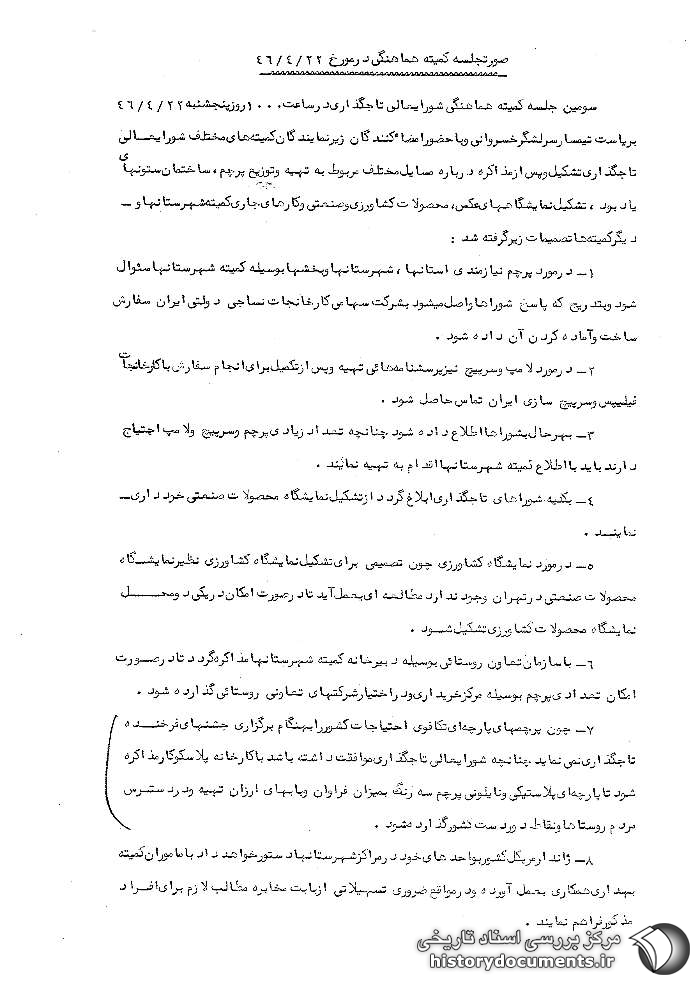 صورتجلسه کمیته هماهنگی در مورخ ۴۶/۴/۲۲
سومین جلسه کمیته هماهنگی شورایعالی تاجگذاری در ساعت ۱۰۰۰ روز پنجشنبه ۴۶/۴/۲۲
بریاست تیمسار سرلشگر خسروانی و با حضور امضاء کنندگان زیر نمایندگان کمیته های مختلف شورایعالی
تاجگذاری تشکیل و پس از مذاکره درباره مسایل مختلف مربوط به تهیه و توزیع پرچم ، ساختمان ستونهای
یاد بود ، تشکیل نمایشگاههای عکس، محصولات کشاورزی و صنعتی و کارهای جاری کمیته شهرستانها و ـ
دیگر کمیته ها تصمیمات زیر گرفته شد :
۱ـ در مورد پرچم نیازمندی استانها ، شهرستانها و بخشها بوسیله کمیته شهرستانها سئوال
شود و بتدریج که پاسخ شوراها واصل میشود بشرکت سهامی کارخانجات نساجی دولتی ایران سفارش
ساخت و آماده کردن آن داده شود .
۲ـ در مورد لامپ و سرپیچ نیز پرسشنامه هائی تهیه و پس از تکمیل برای انجام سفارش با کارخانجات
فیلیپس و سرپیچ سازی ایران تماس حاصل شود .
۳ـ بهر حال بشوراها اطلاع داده شود چنانچه تعداد زیادی پرچم و سرپیچ ولامپ احتیاج
دارند باید با اطلاع کمیته شهرستانها اقدام به تهیه نمایند .
۴ـ بکلیه شوراهای تاجگذاری ابلاغ گردد از تشکیل نمایشگاه محصولات صنعتی خودداری ـ
نماینـد .
۵ـ در مورد نمایشگاه کشاورزی چون تصمیمی برای تشکیل نمایشگاه کشاورزی نظیر نمایشگاه
محصولات صنعتی در تهران وجود ندارد مطالعه ای بعمل آید تا در صورت امکان در یکی دو محل
نمایشگاه محصولات کشاورزی تشکیل شود .
۶ـ با سازمان تعاون روستائی بوسیله دبیرخانه کمیته شهرستانها مذاکره گردد تا در صورت
امکان تعدادی پرچم بوسیله مرکز خریداری و در اختیار شرکتهای تعاونی روستائی گذارده شود .
۷ـ چون پرچمهای پارچه ای تکافوی احتیاجات کشور را بهنگام برگزاری جشنهای فرخنده
تاجگذاری نمی نماید چنانچه شورایعالی تاجگذاری موافقت داشته باشد با کارخانه پلاسکوکار مذاکره
شود تا پارچه های پلاستیکی و نایلونی پرچم سه رنگ بمیزان فراوان و با بهای ارزان تهیه و در دسترس
مردم روستاها و نقاط دور دست کشور گذارده شود .
۸ـ ژاندارمریکل کشور بواحد های خود در مراکز شهرستانها دستور خواهد داد با ماموران کمیته
بهداری همکاری بعمل آورده و در مواقع ضروری تسهیلاتی از بابت مخابره مطالب لازم برای افراد
مذکور فراهم نمایند .
مرکز بررسی اسناد تاریخی
historydocuments.ir